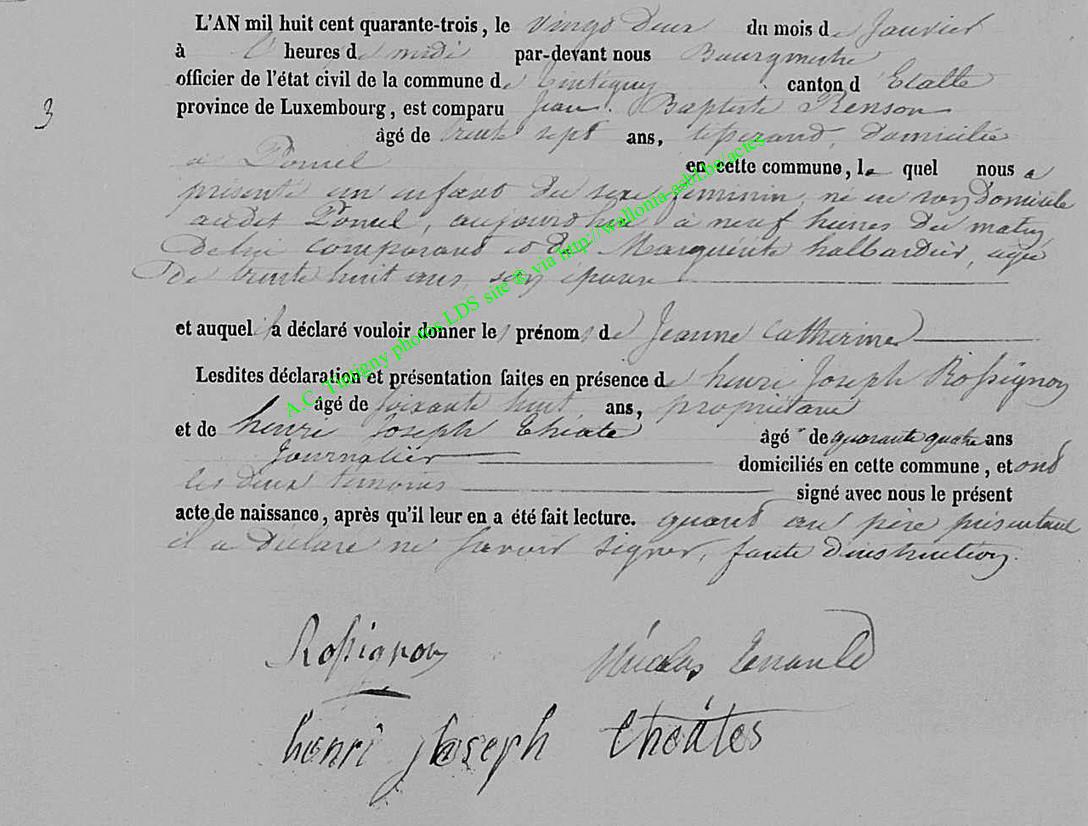 L'AN mil huit cent quarante-trois, le vingt deux du mois de Janvier
à heures de midi par-devant nous Bourgmestre
officier de l'état civil de la commune de Tintigny canton d Etalle
province de Luxembourg, est comparu Jean Baptiste Renson
3
âgé de trente sept ans, domicilié
a Poncel en cette commune, le quel nous a
présenté un enfant du sexe féminin, né en son domicile
audit Poncel, aujourd'hui à neuf heures du matin
de lui comparant et de Marguerite halbardier agée
de trente huit ans, son épouse
et auquel il a déclaré vouloir donner les prénoms de Jeanne Catherine
Lesdites déclaration et présentation faites en présence de henri Joseph Rossignon
âgé de soixante huit ans, propriétaire
et de henri Joseph Theate âgé de quarante quatre ans
Journalier domiciliés en cette commune, et ont
les deux temoins signé avec nous le présent
acte de naissance, après qu'il leur en a été fait lecture. quant au père présentant
il a déclaré ne savoir signer, faute d'instruction.
Rossignon Nicolas
henri Joseph Theâtes
A.C. Tintigny photos LDS site @ via http://wallonia-asbl.be/actes